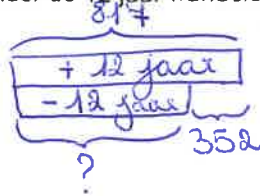 817
+ 12 jaar
- 12 jaar
352
?